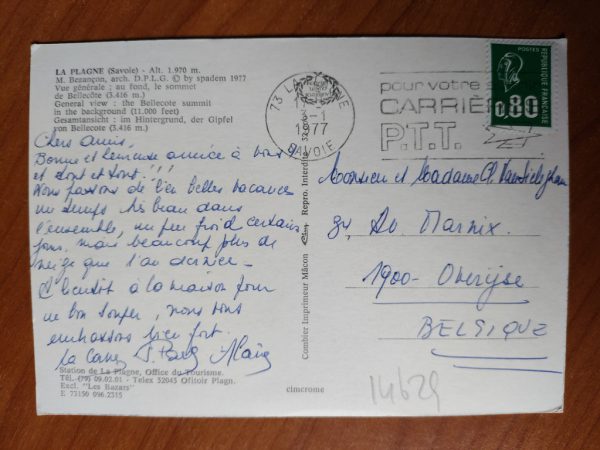 LA PLAGNE (Savoie) - Alt. 1.970 m.
M. Bezançon, arch. D.P.L.G. © by spadem 1977
Vue générale : au fond, le sommet
de Bellecôte (3.416 m.)
General view : the Bellecote summit
in the background (11.000 feet)
Gesamtansicht : im Hintergrund, der Gipfel
von Bellecote (3.416 m.)
Chers Amis,
Bonne et heureuse année à vous
et tous !!!
Nous passons de bien belles vacances
un temps très beau dans
l'ensemble, un peu froid certains
jours, mais beaucoup plus de
neige que l'an dernier -
A bientôt à la maison pour
un bon souper, nous vous
embrassons bien fort.
Station de La Plagne, Office du Tourisme.
Tél. (79) 09.02.01 - Telex 32045 Ofitoir Plagn.
Excl. "Les Bazars"
E 73150 096.2315
Combier Imprimeur Mâcon
Repro. Interdite
cimcrome
73 LA
1977
SAVOIE
pour votre
CARRIÈ
P.T.T.
POSTES
0,80
REPUBLIQUE FRANÇAISE
Monsieur et Madame
34, Av Marnix.
1900 - Overijse
BELGIQUE
14629